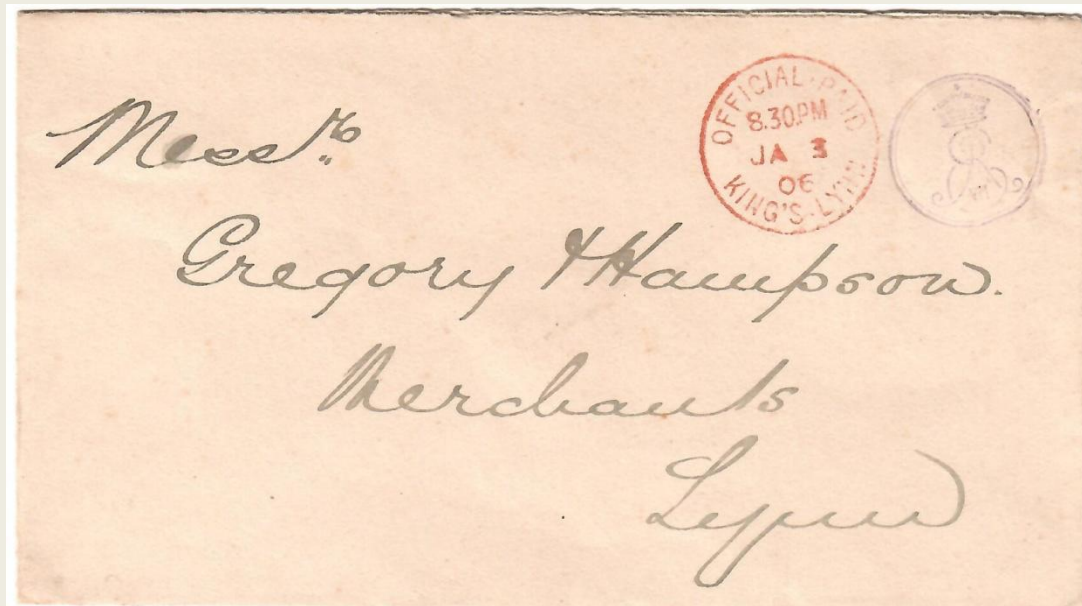 OFFICIAL·PAID
8.30PM
JA 3
06
KING'S-LYNN
Messrs
Gregory & Hampson.
Merchants
Lynn